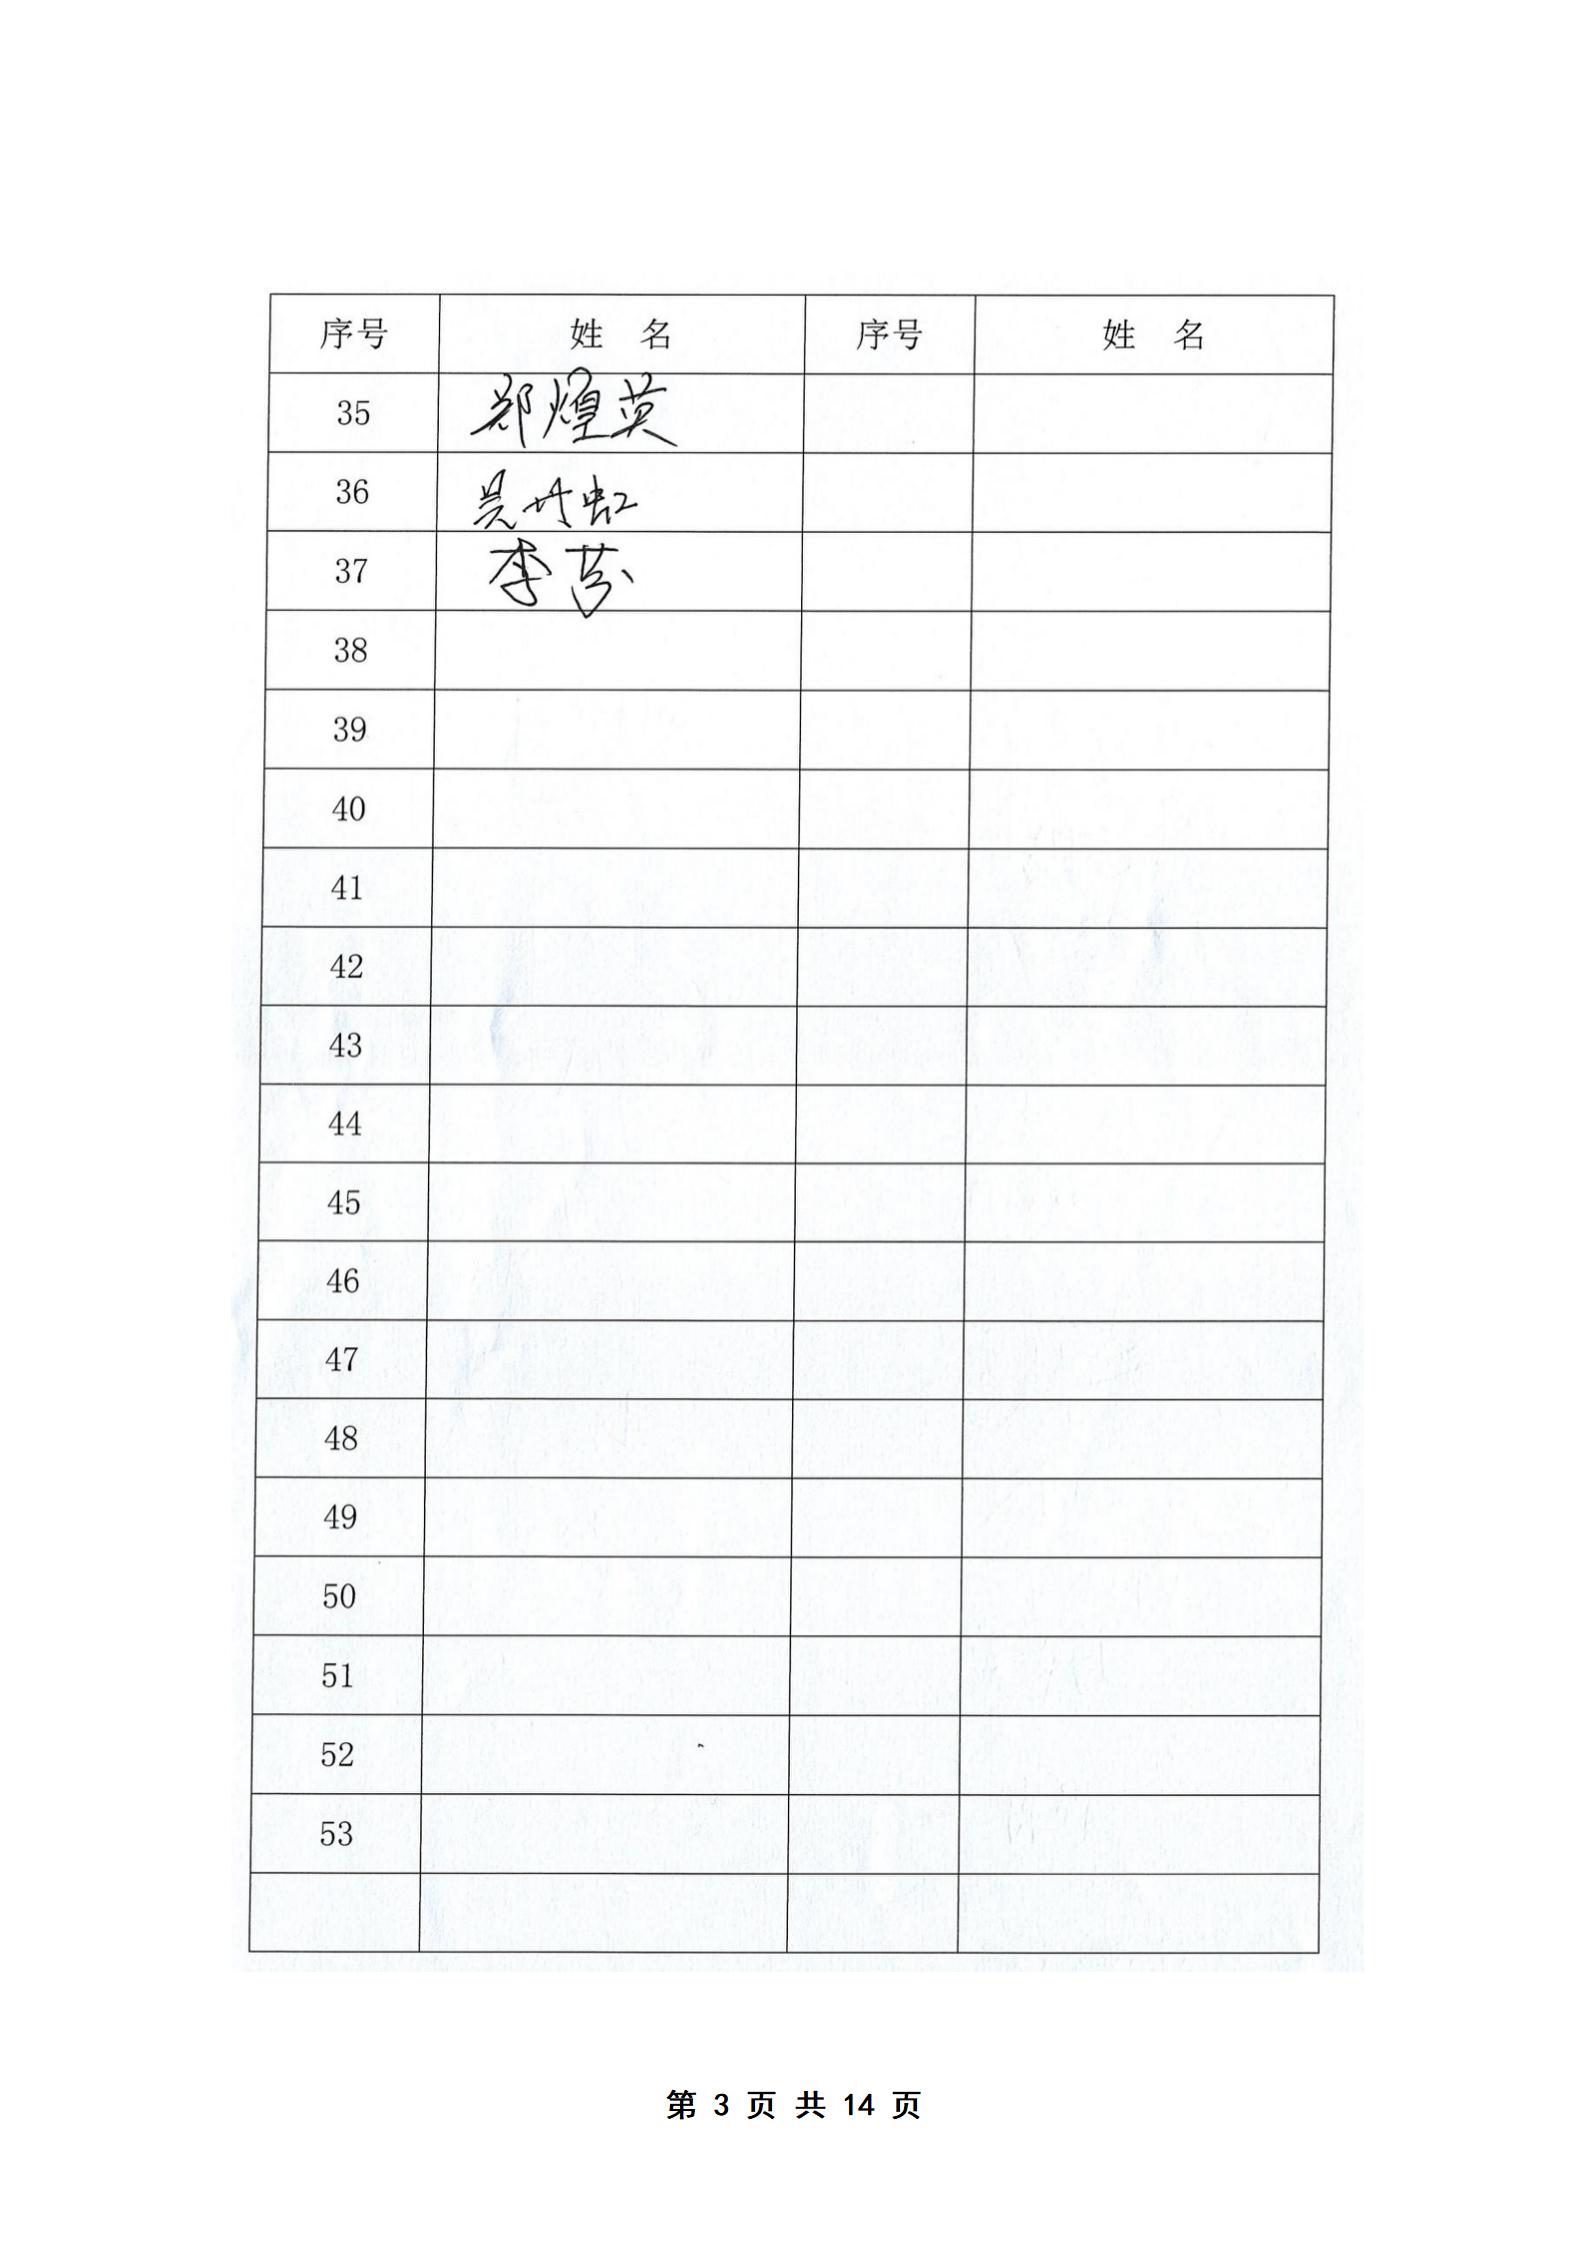 序号 姓 名 序号 姓 名
35 郑煌英
36 吴丹虹
37 李芬
38
39
40
41
42
43
44
45
46
47
48
49
50
51
52
53
第 3 页 共 14 页